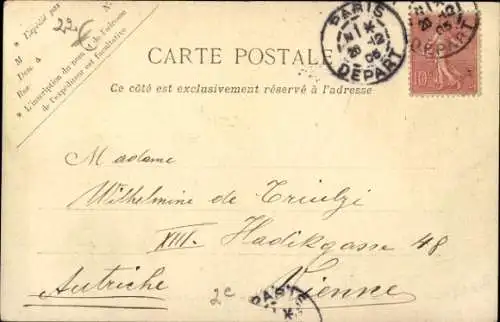 * Expédié par
M
Dem. à
Rue
N°
* L'inscription du nom et de l'adresse
de l'expéditeur est facultative
22 €
CARTE POSTALE
Ce côté est exclusivement réservé à l'adresse
PARIS
28 -12
05
DEPART
28 -12
05
DEPART
10
Madame
Wilhelmine de
XIII. Hadikgasse 48
Autriche
Vienne
2e